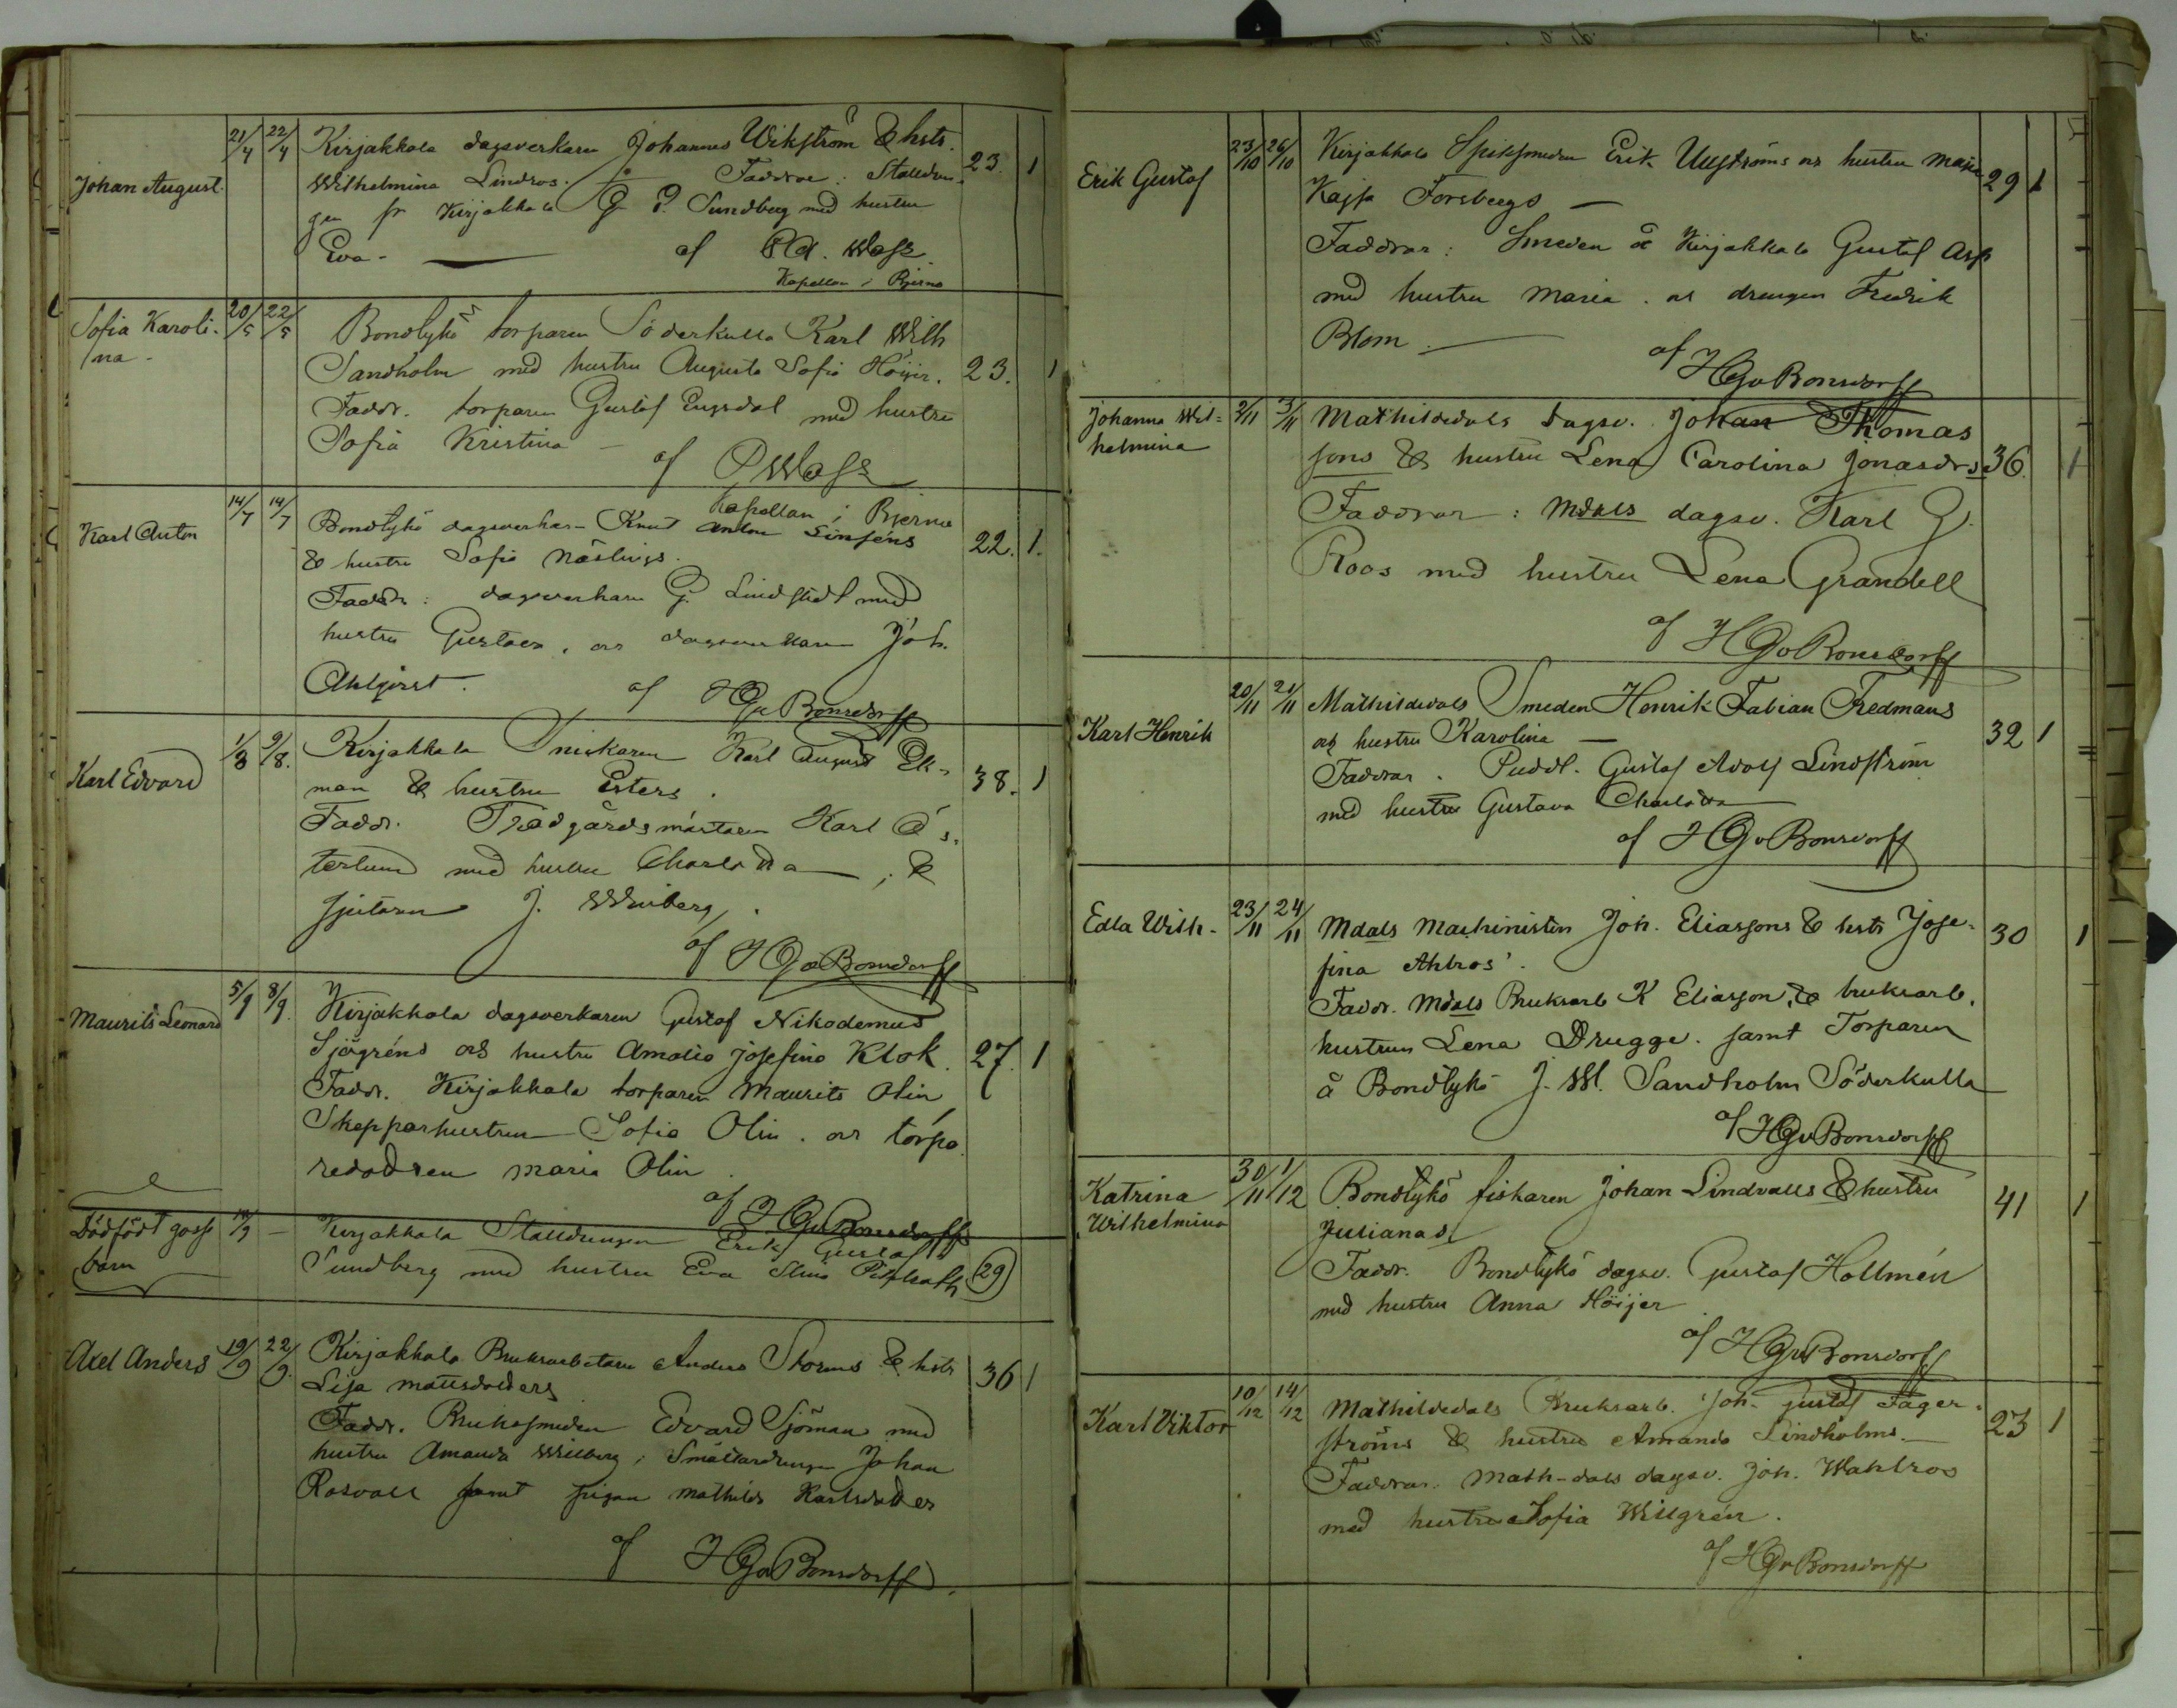 Johan August 21/4 22/4 Kirjakkala dagsverkaren Johannes Wikström & hstr. 23. 1
Wilhelmina Lindros. Faddrar: Stalldrän-
gen fr Kirjakkala G. Sundberg med hustru
Eva. — af Wass
Kapellan i Bjerno
Sofia Karoli- 20/5 22/5 Bondlykö torparen Söderkulla Karl Wilh
na. Sandholm med hustru Augusta Sofia Höijer. 23. 1
Faddr. torparen Gustaf Engsdal med hustru
Sofia Kristina —
af Wass
Kapellan i Bjerno
Karl Anton 14/7 14/7 Bondlykö dagsverkar- Knut Anton Linséns 22. 1.
& hustru Sofia Näslings.
Faddr: dagsverkaren G. Lindstedt med
hustru Gustava, och dagsverkaren Joh.
Ahlqvist. af HGvBonsdorff
Karl Edvard 1/8 9/8. Kirjakkala Snickaren Karl August Ek- 38. 1
man & hustru Esters.
Faddr. Trädgårdsmästaren Karl Ös-
terlund med hustru Charlotta —, &
gjutaren J. Winberg.
af HGvBonsdorff
Maurits Leonard 5/9 8/9. Kirjakkala dagsverkaren Gustaf Nikodemus
Sjögréns och hustru Amalia Josefina Klok. 27. 1
Faddr. Kirjakkala torparen Maurits Olin
Skepparhustrun Sofia Olin. och torpa-
redottren Maria Olin.
af HGvBonsdorff
Dödfödt goss /9 — Kirjakkala Stalldrengen Erik Gustaf
barn Sundberg med hustru Eva (29)
Axel Anders 19/9 22/9. Kirjakkala Bruksarbetaren Anders Storms & hstr 36 1
Lisa Mattsdotters
Faddr. Bruksmeden Edvard Sjöman med
hustru Amanda Willberg, Smältardrengen Johan
Rosvall samt pigan Mathilda Karlsdotter
af HGvBonsdorff.
Erik Gustaf 23/10 26/10 Kirjakkala Spiksmeden Erik Ungströms och hustru Maria 29 1
Kajsa Forsbergs —
Faddrar: Smeden å Kirjakkala Gustaf Asp
med hustru Maria. och drengen Fredrik
Blom. —
af HGvBonsdorff
Johanna Wil- 2/11 3/11 Mathildedals dagsv. Johan Thomas
helmina sons & hustru Lena Carolina Jonasdrs 36. 1
Faddrar: Mdals dagsv. Karl G.
Roos med hustru Lena Grandell
af HGvBonsdorff
Karl Henrik 20/11 21/11 Mathildedals Smeden Henrik Fabian Fredmans 32 1
och hustru Karolina —
Faddrar. Puddl. Gustaf Adolf Lindström
med hustru Gustava Charlotta
af HGvBonsdorff
Edla Wilh- 23/11 24/11 Mdals Machinisten Joh. Eliassons & hstr Jose- 30 1
fina Ahlros'.
Faddr. Mdals Bruksarb K Eliasson, & bruksarb.
hustrun Lena Drugge. samt Torparen
å Bondlykö J. W. Sandholm Söderkulla
af HGvBonsdorff
Katrina 30/11 1/12 Bondlykö fiskaren Johan Lindvalls & hustru 41 1
Wilhelmina Julianas
Faddr. Bondlykö dagsv. Gustaf Hollmén
med hustru Anna Höijer
af HGvBonsdorff
Karl Viktor 10/12 14/12 Mathildedals Bruksarb. Joh. Gustaf Fager- 23 1
ströms & hustru Amanda Lindholms. —
Faddrar. Math-dals dagsv. Joh. Wahlros
med hustru Sofia Willgrén.
af HGvBonsdorff